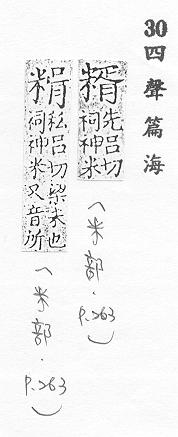 30四聲篇海
糈先呂切
祠神米
(米部.P.263)
私呂切粱米也
祠神米又音所
(米部.P.263)